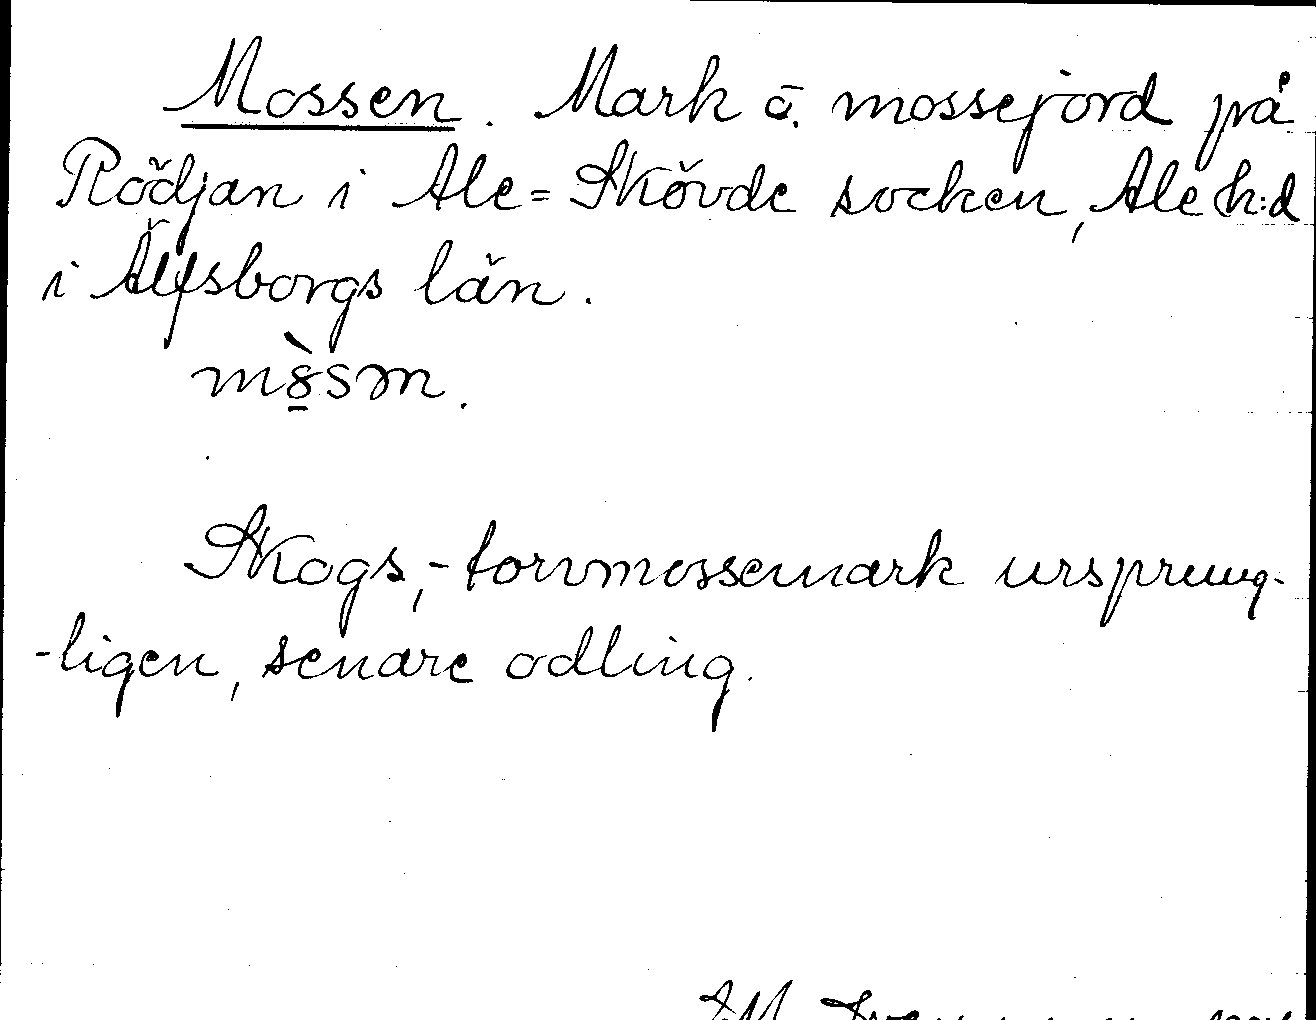 Mossen. Mark å. mossejord på
Rödjan i Ale=Skövde socken, Ale h:d
i Älfsborgs län.
mo̱̊̀sən.
Skogs,- torvmossemark ursprung-
-ligen, senare odling.